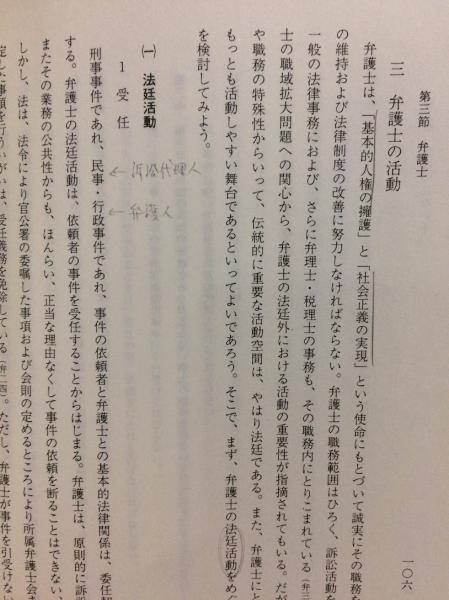 第三節　弁護士
一〇六
三　弁護士の活動
弁護士は、「基本的人権の擁護」と「社会正義の実現」という使命にもとづいて誠実にその職務を
の維持および法律制度の改善に努力しなければならない。弁護士の職務範囲はひろく、訴訟活動を
一般の法律事務におよび、さらに弁理士・税理士の事務も、その職務内にとりこまれている（弁三
士の職域拡大問題への関心から、弁護士の法廷外における活動の重要性が指摘されてもいる。だが
や職務の特殊性からいって、伝統的に重要な活動空間は、やはり法廷である。また、弁護士にと
もっとも活動しやすい舞台であるといってよいであろう。そこで、まず、弁護士の法廷活動をめぐ
を検討してみよう。
㈠　法廷活動
1　受　任
←訴訟代理人
←弁護人
刑事事件であれ、民事・行政事件であれ、事件の依頼者と弁護士との基本的法律関係は、委任契
する。弁護士の法廷活動は、依頼者の事件を受任することからはじまる。弁護士は、原則的に訴訟
またその業務の公共性からも、ほんらい、正当な理由なくして事件の依頼を断ることはできない、
しかし、法は、法令により官公署の委嘱した事項および会則の定めるところにより所属弁護士会ま
定した事項を行ういがいは、受任義務を免除している（弁二四）。ただし、弁護士が事件を引受けない